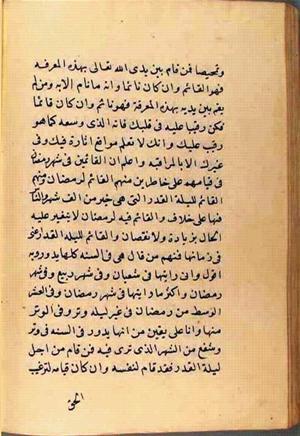 وتحيصا فمن قام بين يدى الله تعالى بهذه المعرفه
فهو القائم وان كان نائما وانه مانام الابه ومن لم
يقم بين يديه بهذه المعرفة فهو نائم وان كان قائما
فكن رقيبا عليه فى قلبك فانه الذى وسعه كما هو
رقيب عليك وانك لا تعلم مواقع اثاره فيك وفى
غيرك الا بالمراقبه واعلم ان القائمين فى شهر رمضان
فى قيامهم على خاطرين منهم القائم لرمضان ومنهم
القائم لليلة القدر التى هى خير من الف شهر والناس
فيها على خلاف والقائم فيه لرمضان لا يتغير عليه
الحال بزيادة ولا نقصان والقائم لليلة القدر
فى زمانها فمنهم من قال هى فى السنه كلها يدور وبه
اقول وانى رايتها فى شعبان وفى شهر ربيع وفى شهر
رمضان واكثر ما رايتها فى شهر رمضان وفى العشر
الاوسط من رمضان فى غير ليلة وتر وفى الوتر
منها وانا على يقين من انها يدور فى السنه فى وتر
وشفع من الشهر الذى ترى فيه فمن قام من اجل
ليلة القدر فقد قام لنفسه وان كان قيامه لترغيب
الحق